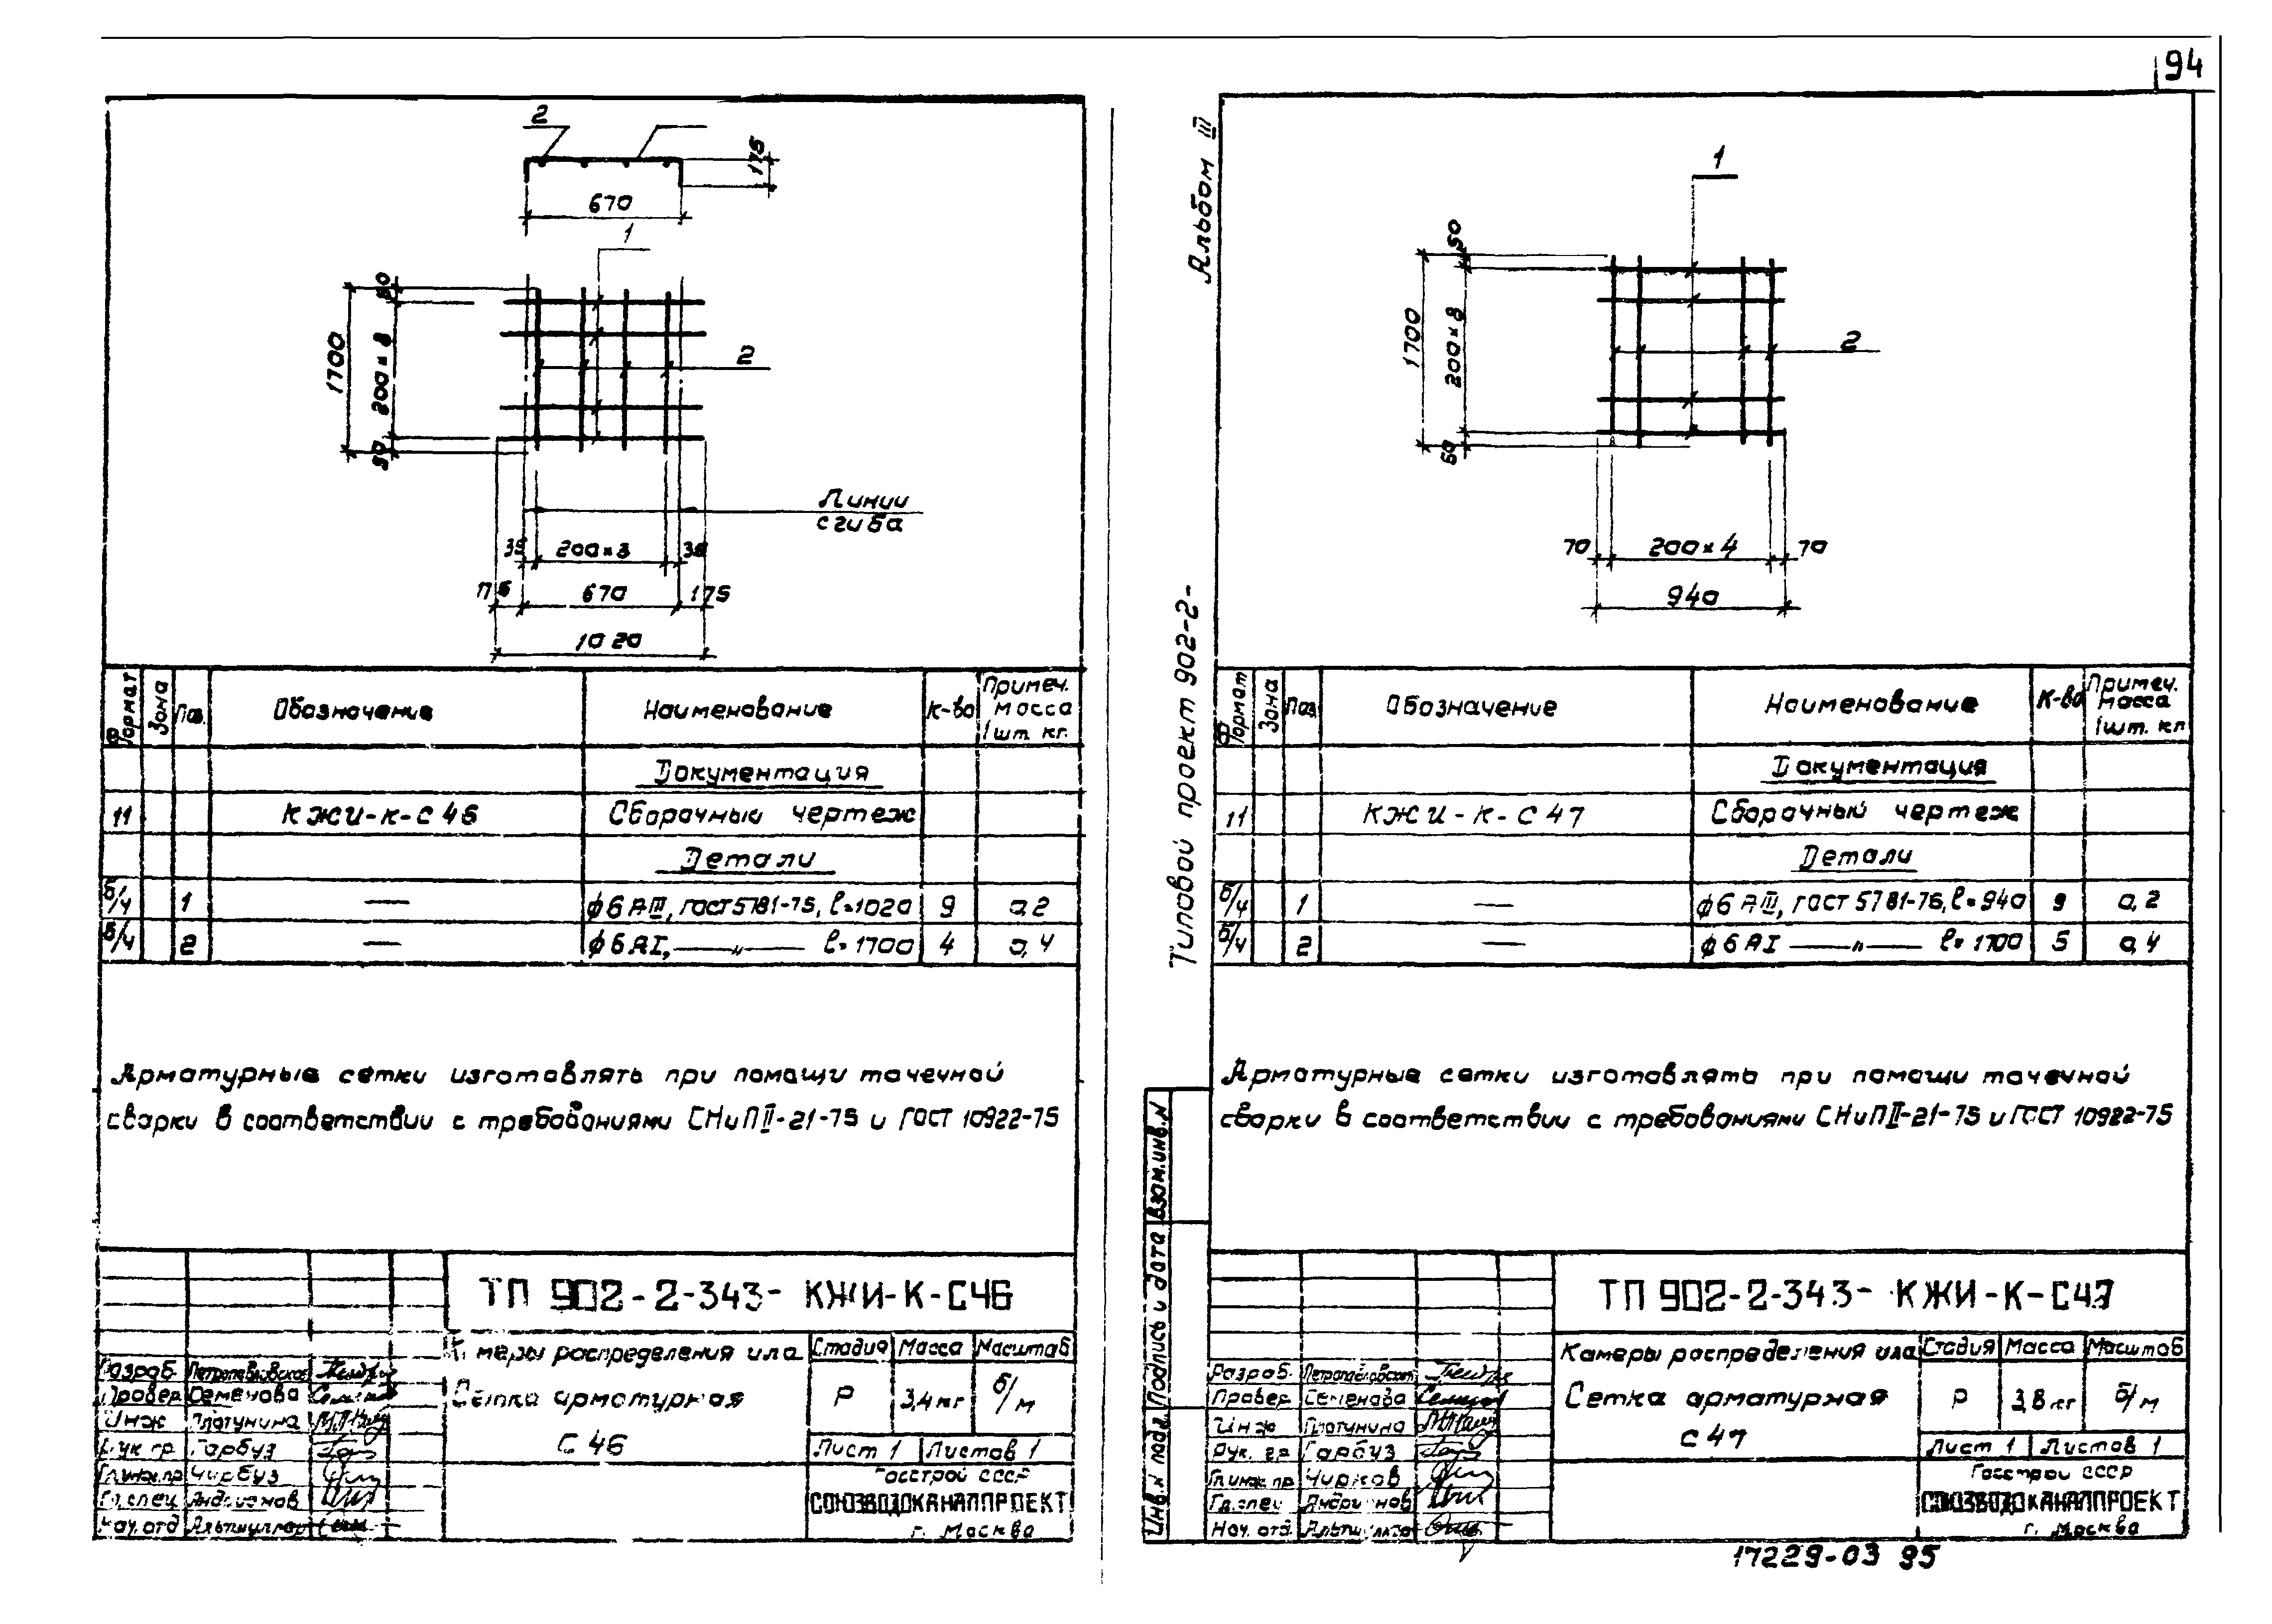 94
2
175
670
1
50
1700
200×8
50
2
Линии
сгиба
35 200×3 35
175 670 175
1020
Формат Зона Поз. Обозначение Наименование К-во Примеч. масса 1шт. кг.
Документация
11 КЖИ-К-С46 Сборочный чертеж
Детали
б/ч 1 — ф6АIII, ГОСТ5781-75, ℓ=1020 9 0,2
б/ч 2 — ф6АI, —„— ℓ=1700 4 0,4
Арматурные сетки изготовлять при помощи точечной
сварки в соответствии с требованиями СНиПII-21-75 и ГОСТ 10922-75
ТП 902-2-343- КЖИ-К-С46
Камеры распределения ила
Сетка арматурная
С 46
Стадия Масса Масштаб
Р 3,4кг б/м
Лист 1 Листов 1
Госстрой СССР
СОЮЗВОДОКАНАЛПРОЕКТ
г. Москва
Разраб. Петропавловская
Провер. Семенова
Инж Плотунина
Рук. гр. Гарбуз
Гл.инж.пр. Чирбуз
Гл.спец. Андрианов
Нач. отд
Альбом III
Типовой проект 902-2-
Инв.N подл. Подпись и дата Взам.инв.N
1
50
1700
200×8
50
2
70 200×4 70
940
Формат Зона Поз. Обозначение Наименование К-во Примеч. масса 1шт. кг
Документация
11 КЖИ-К-С47 Сборочный чертеж
Детали
б/ч 1 — ф6АIII, ГОСТ 5781-75, ℓ=940 9 0,2
б/ч 2 — ф6АI —„— ℓ=1700 5 0,4
Арматурные сетки изготовлять при помощи точечной
сварки в соответствии с требованиями СНиПII-21-75 и ГОСТ 10922-75
ТП 902-2-343- КЖИ-К-С47
Камеры распределения ила
Сетка арматурная
С 47
Стадия Масса Масштаб
Р 3,8кг б/м
Лист 1 Листов 1
Госстрой СССР
СОЮЗВОДОКАНАЛПРОЕКТ
г. Москва
Разраб. Петропавловская
Провер. Семенова
Инж Плотунина
Рук. гр. Гарбуз
Гл.инж.пр. Чирков
Гл.спец Андрианов
Нач. отд.
17229-03 95